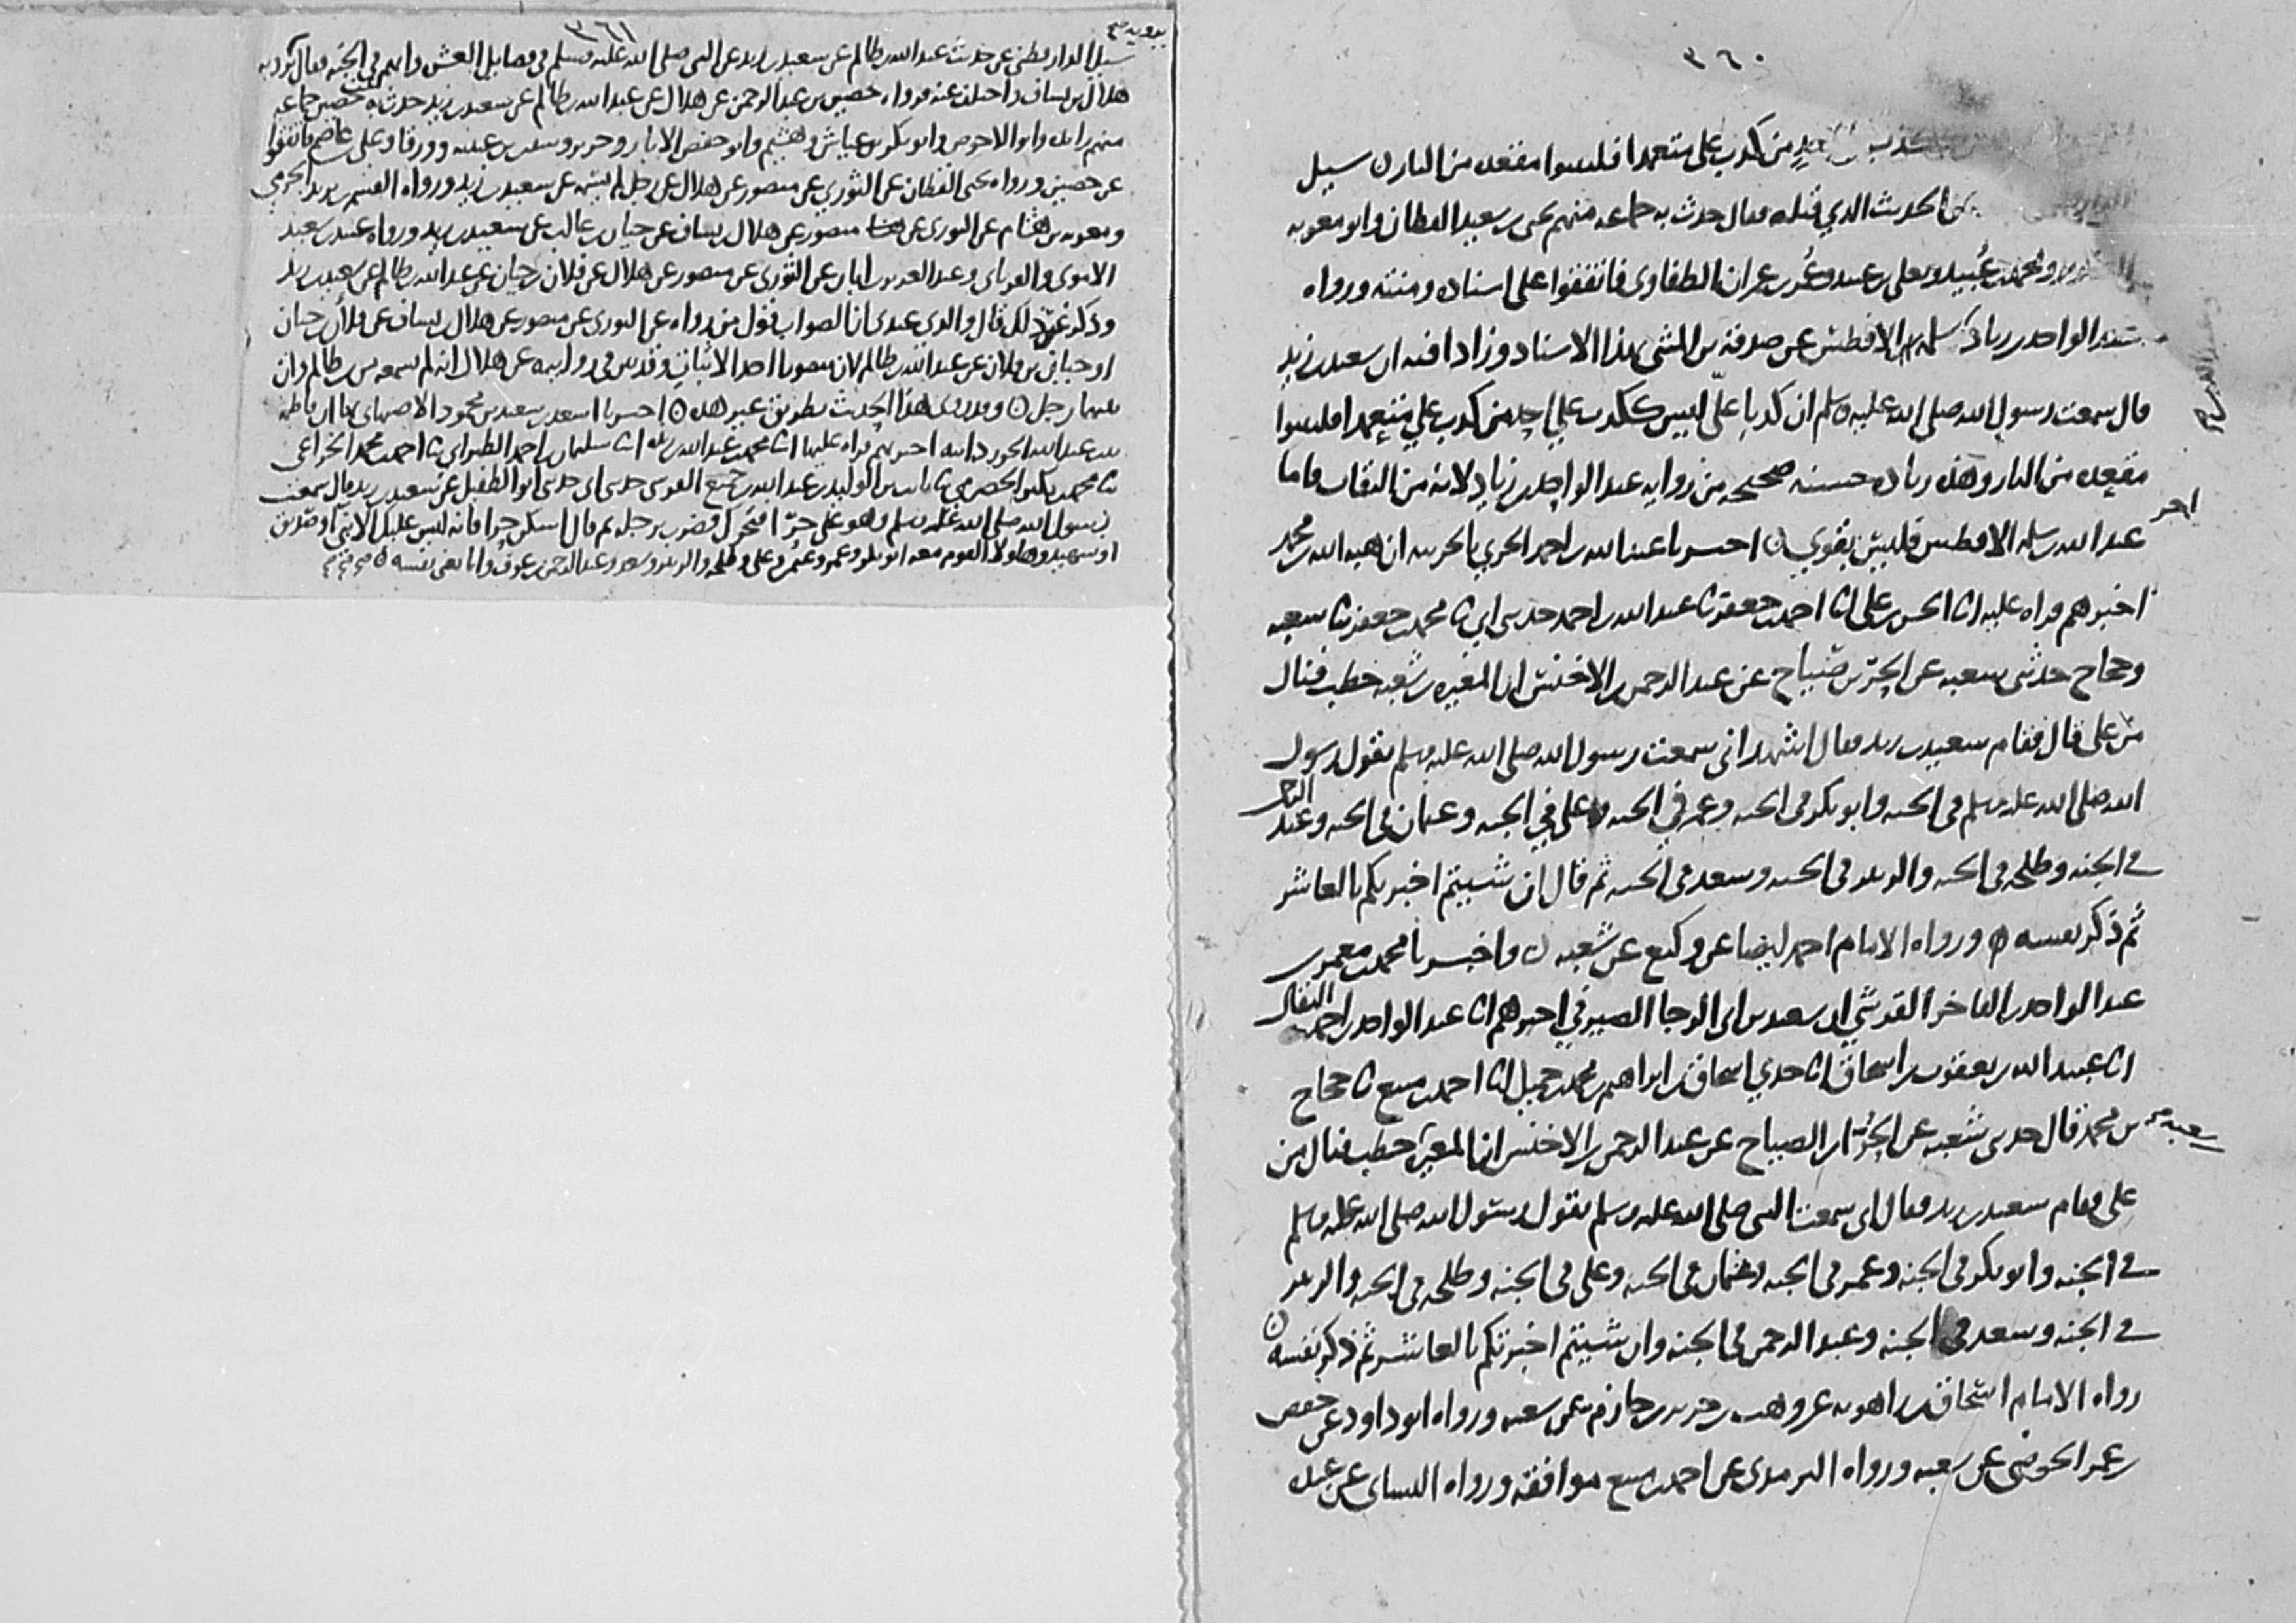 ٣٦٠
من كذب علي متعمدا فليتبوا مقعده من النار ن سيل
الحديث الذي قبله فقال حدث به جماعه منهم يحيى بن سعيد القطان وابو معويه
ومحمد بن عبيد ويعلى بن عبيد وعمر بن عمران الطفاوي فاتفقوا على اسناده ومتنه ورواه
عبد الواحد بن زياد سلمه الافطس عن صدقة بن المثنى بهذا الاسناد وزادا فيه ان سعيد بن زيد
قال سمعت رسول الله صلى الله عليه وسلم ان كذبا علي ليس ككذب على احد من كذب علي متعمدا فليتبوا
مقعده من النار وهذه زياده حسنه صحيحه من روايه عبد الواحد بن زياد لانه من الثقات واما
عبد الله بن سلمه الافطس فليس بقوي ن اخبرنا عبد الله بن احمد الحربي بالحربيه ان هبه الله بن محمد
اخبرهم قراه عليه انا الحسن بن علي انا احمد بن جعفر ثنا عبد الله بن احمد حدثني ابي ثنا محمد بن جعفر ثنا شعبه
وحجاج حدثني شعبه عن الحر بن صياح عن عبد الرحمن بن الاخنس ان المغيره بن شعبه خطب فنال
من علي قال فقام سعيد بن زيد فقال اشهد اني سمعت رسول الله صلى الله عليه وسلم يقول رسول
الله صلى الله عليه وسلم في الجنه وابو بكر في الجنه وعمر في الجنه وعلي في الجنه وعثمان في الجنه وعبد الرحمن
في الجنه وطلحه في الجنه والزبير في الجنه وسعد في الجنه ثم قال ان شيتم اخبرتكم بالعاشر
ثم ذكر نفسه ه ورواه الامام احمد ايضا عن وكيع عن شعبه ن واخبرنا محمد بن معمر بن
عبد الواحد بن الفاخر القرشي ان سعيد بن ابي الرجا الصيرفي اخبرهم انا عبد الواحد بن احمد البقال
انا عبيد الله بن يعقوب بن اسحاق انا جدي اسحاق بن ابراهيم بن محمد بن جميل انا احمد بن منيع ثنا حجاج
بن محمد قال حدثني شعبه عن الحر بن الصياح عن عبد الرحمن بن الاخنس ان المغيره بن شعبه خطب فنال من
علي فقام سعيد بن زيد فقال اني سمعت النبي صلى الله عليه وسلم يقول رسول الله صلى الله عليه وسلم
في الجنه وابو بكر في الجنه وعمر في الجنه وعثمان في الجنه وعلي في الجنه وطلحه في الجنه والزبير
في الجنه وسعد في الجنه وعبد الرحمن في الجنه وان شيتم اخبرتكم بالعاشر ثم ذكر نفسه ن
رواه الامام اسحاق بن راهويه عن وهب بن جرير بن حازم عن شعبه ورواه ابو داود عن حفص
بن عمر الحوضي عن شعبه ورواه الترمذي عن احمد بن منيع موافقه ورواه النسائي عن عبد
٣٦١
سيل الدارقطني عن حديث عبد الله بن ظالم عن سعيد بن زيد عن النبي صلى الله عليه وسلم في فضايل العشره وانهم في الجنه فقال يرويه
هلال بن يساف واختلف عنه فرواه حصين بن عبد الرحمن عن هلال عن عبد الله بن ظالم عن سعيد بن زيد حدث به حصين جماعه
منهم زايده وابو الاحوص وابو بكر بن عياش وهشيم وابو حفص الابار وجرير وسفين بن عيينه وورقا وعلي بن عاصم فاتفقوا
عن حصين ورواه يحيى القطان عن الثوري عن منصور عن هلال عن رجل لم يسمه عن سعيد بن زيد ورواه القسم بن يزيد الجرمي
ومعويه بن هشام عن الثوري عن منصور عن هلال بن يساف عن حيان بن غالب عن سعيد بن زيد ورواه عبيد بن سعيد
الاموي والفريابي وعبد العزيز بن ابان عن الثوري عن منصور عن هلال عن فلان بن حيان عن عبد الله بن ظالم عن سعيد بن زيد
وذكر غير ذلك قال والذي عندي ان الصواب قول من رواه عن الثوري عن منصور عن هلال بن يساف عن فلان بن حيان
او حيان بن فلان عن عبد الله بن ظالم لان منصورا احد الاثبات وقد بين في روايته عن هلال انه لم يسمعه من بن ظالم وان
بينهما رجل ن وقد روي هذا الحديث بطريق غير هذه ن اخبرنا اسعد بن سعيد بن محمود الاصبهاني بها ان فاطمه
بنت عبد الله الجوزدانيه اخبرتهم قراه عليها انا محمد بن عبد الله بن ريذه انا سليمان بن احمد الطبراني ثنا احمد بن محمد الخزاعي
ثنا محمد بن بكير الحضرمي ثنا ثابت بن الوليد بن عبد الله بن جميع القرشي حدثني ابي حدثني ابو الطفيل عن سعيد بن زيد قال سمعت
رسول الله صلى الله عليه وسلم وهو على حرا فتحرك فضرب برجله ثم قال اسكن حرا فانه ليس عليك الا نبي او صديق
او شهيد وهاولا القوم معه ابو بكر وعمر وعثمن وعلي وطلحه والزبير وسعد وعبد الرحمن بن عوف وانا يعني نفسه ه